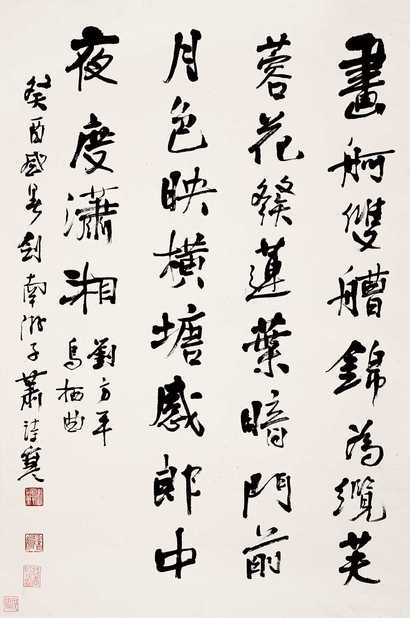 畫舸雙艚錦為纜芙
蓉花發蓮葉暗門前
月色映橫塘感郎中
夜度瀟湘 劉方平
烏栖曲
癸酉盛暑劍南游子蕭詩